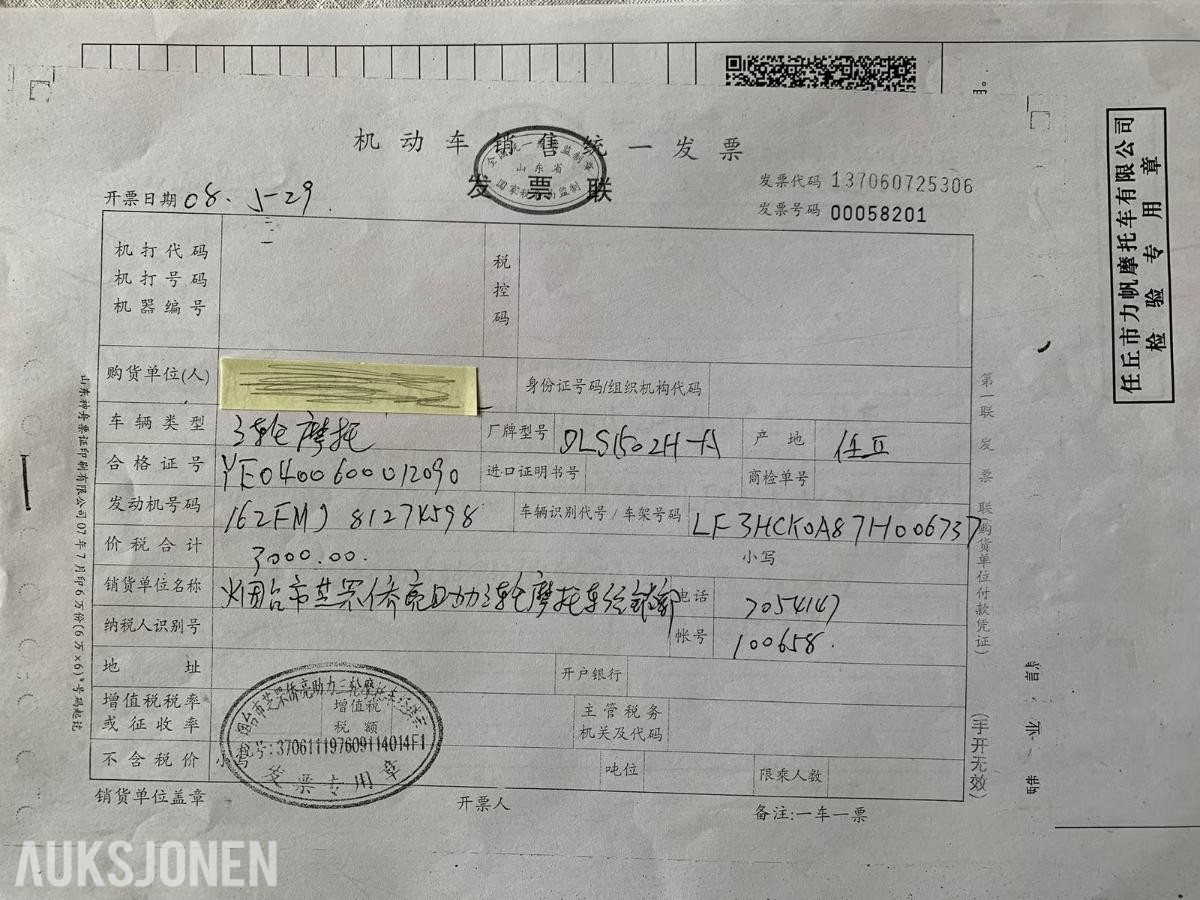 机动车销售统一发票
发票联
全国统一发票监制章
山东省
国家税务局监制
开票日期 08.5-29
发票代码 137060725306
发票号码 00058201
机打代码
机打号码
机器编号
税控码
购货单位(人)
身份证号码/组织机构代码
车辆类型 3轮摩托
厂牌型号 DLS1502H-A
产地 任丘
合格证号 YE0400600012090
进口证明书号
商检单号
发动机号码 162FMJ 8127K598
车辆识别代号/车架号码 LF3HCK0A87H006737
价税合计 3000.00.
小写
销货单位名称 烟台市芝罘侨亮助力三轮摩托车经销部
电话 7054147
纳税人识别号
帐号 100658.
地址
开户银行
增值税税率或征收率
增值税税额
主管税务机关及代码
不含税价 小写
吨位
限乘人数
烟台市芝罘侨亮助力三轮摩托车经销部
税号:370611197609114014F1
发票专用章
销货单位盖章
开票人
备注:一车一票
第一联 发票联(购货单位付款凭证)
(手开无效)
山东神舟票证印刷有限公司07年7月印6万份(6万x6)*号码起讫
任丘市力帆摩托车有限公司
检验专用章
AUKSJONEN